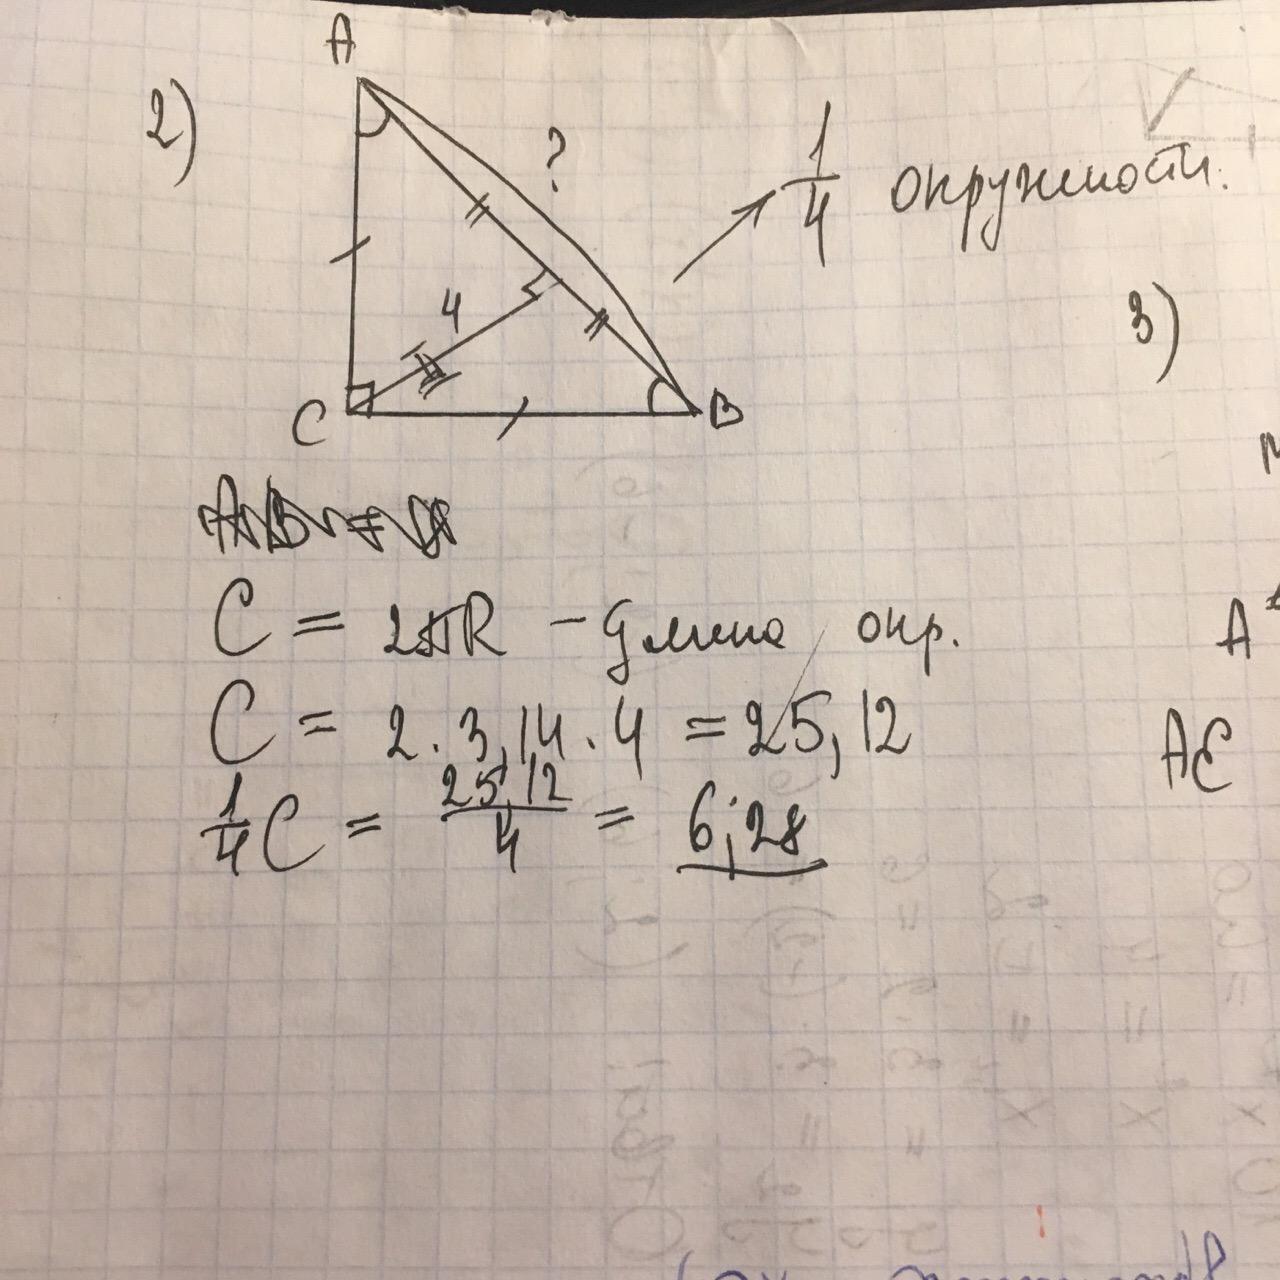 2)
A
?
1/4 окружности.
4
C
B
3)
C = 2πR – длина окр.
C = 2 · 3,14 · 4 = 25,12
1/4 C = 25,12/4 = 6,28
A
AE